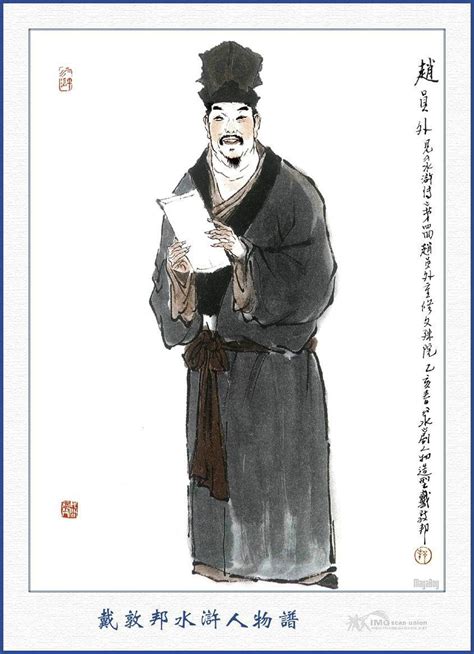 趙員外 見《水滸傳》第四回趙員外重修文殊院 乙亥春日 水滸人物造型 戴敦邦
戴敦邦水滸人物譜
IMG SCAN UNION